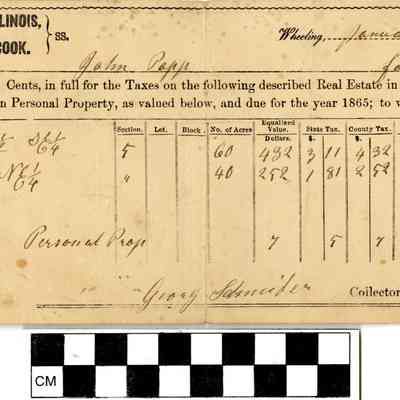 LINOIS,
COOK. } ss. Wheeling, Janua
John Popp
Cents, in full for the Taxes on the following described Real Estate in
n Personal Property, as valued below, and due for the year 1865; to w
Section. Lot. Block. No. of Acres Equalized Value. State Tax. County Tax.
Dollars. $. $.
½ SE¼ 5 60 432 3 11 4 32
NE¼ " 40 252 1 81 2 52
Personal Prop 7 5 7
" " Georg Schneider Collector
CM